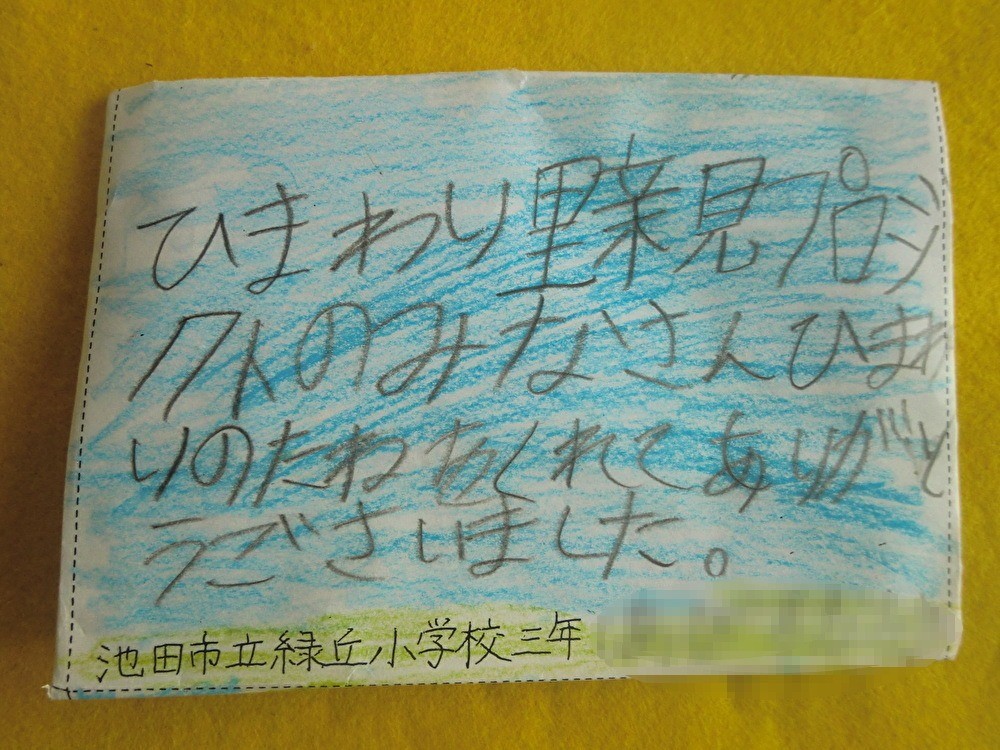 ひまわり里親見プロジ
クトのみなさんひまわ
りのたねをくれてありがと
うございました。
池田市立緑丘小学校三年